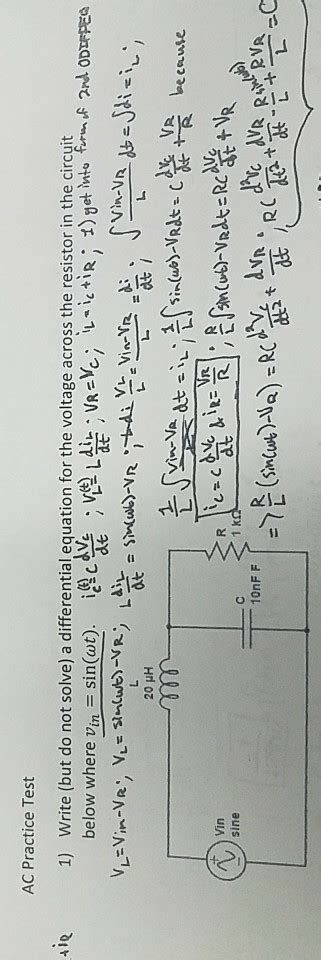 AC Practice Test
+iR
1) Write (but do not solve) a differential equation for the voltage across the resistor in the circuit
below where v_in = sin(ωt). i_c(t) = C dVc/dt ; V_L(t) = L di_L/dt ; VR=Vc ; i_L = i_c + i_R ; 1) get into form of 2nd ODIFFEQ
V_L = Vin-VR ; V_L = sin(ωt)-VR ; L di_L/dt = sin(ωt)-VR ; V_L/L = Vin-VR/L = di/dt ; ∫ Vin-VR/L dt = ∫di = i_L ;
1/L ∫ Vin-VR dt = i_L ; 1/L ∫ sin(ωt)-VR dt = C dVc/dt + VR/R because
i_c = C dVc/dt & i_R = VR/R ; R/L ∫ sin(ωt)-VR dt = RC dVc/dt + VR
=> R/L (sin(ωt)-VR) = RC d²V/dt² + dVR/dt ; RC d²Vc/dt² + dVR/dt - R sin(ωt)/L + RVR/L = 0
L
20 µH
R
1 kΩ
C
10nF F
Vin
sine